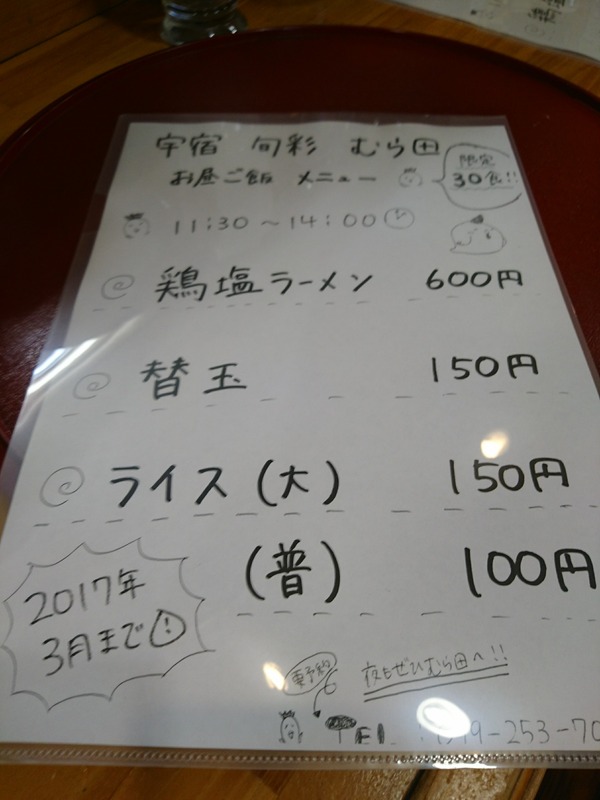 宇宿 旬彩 むら田
お昼ご飯 メニュー
限定
30食!!
11:30～14:00
鶏塩ラーメン 600円
替玉 150円
ライス(大) 150円
(普) 100円
2017年
3月まで!
要予約
夜もぜひむら田へ!!
TEL 9-253-70